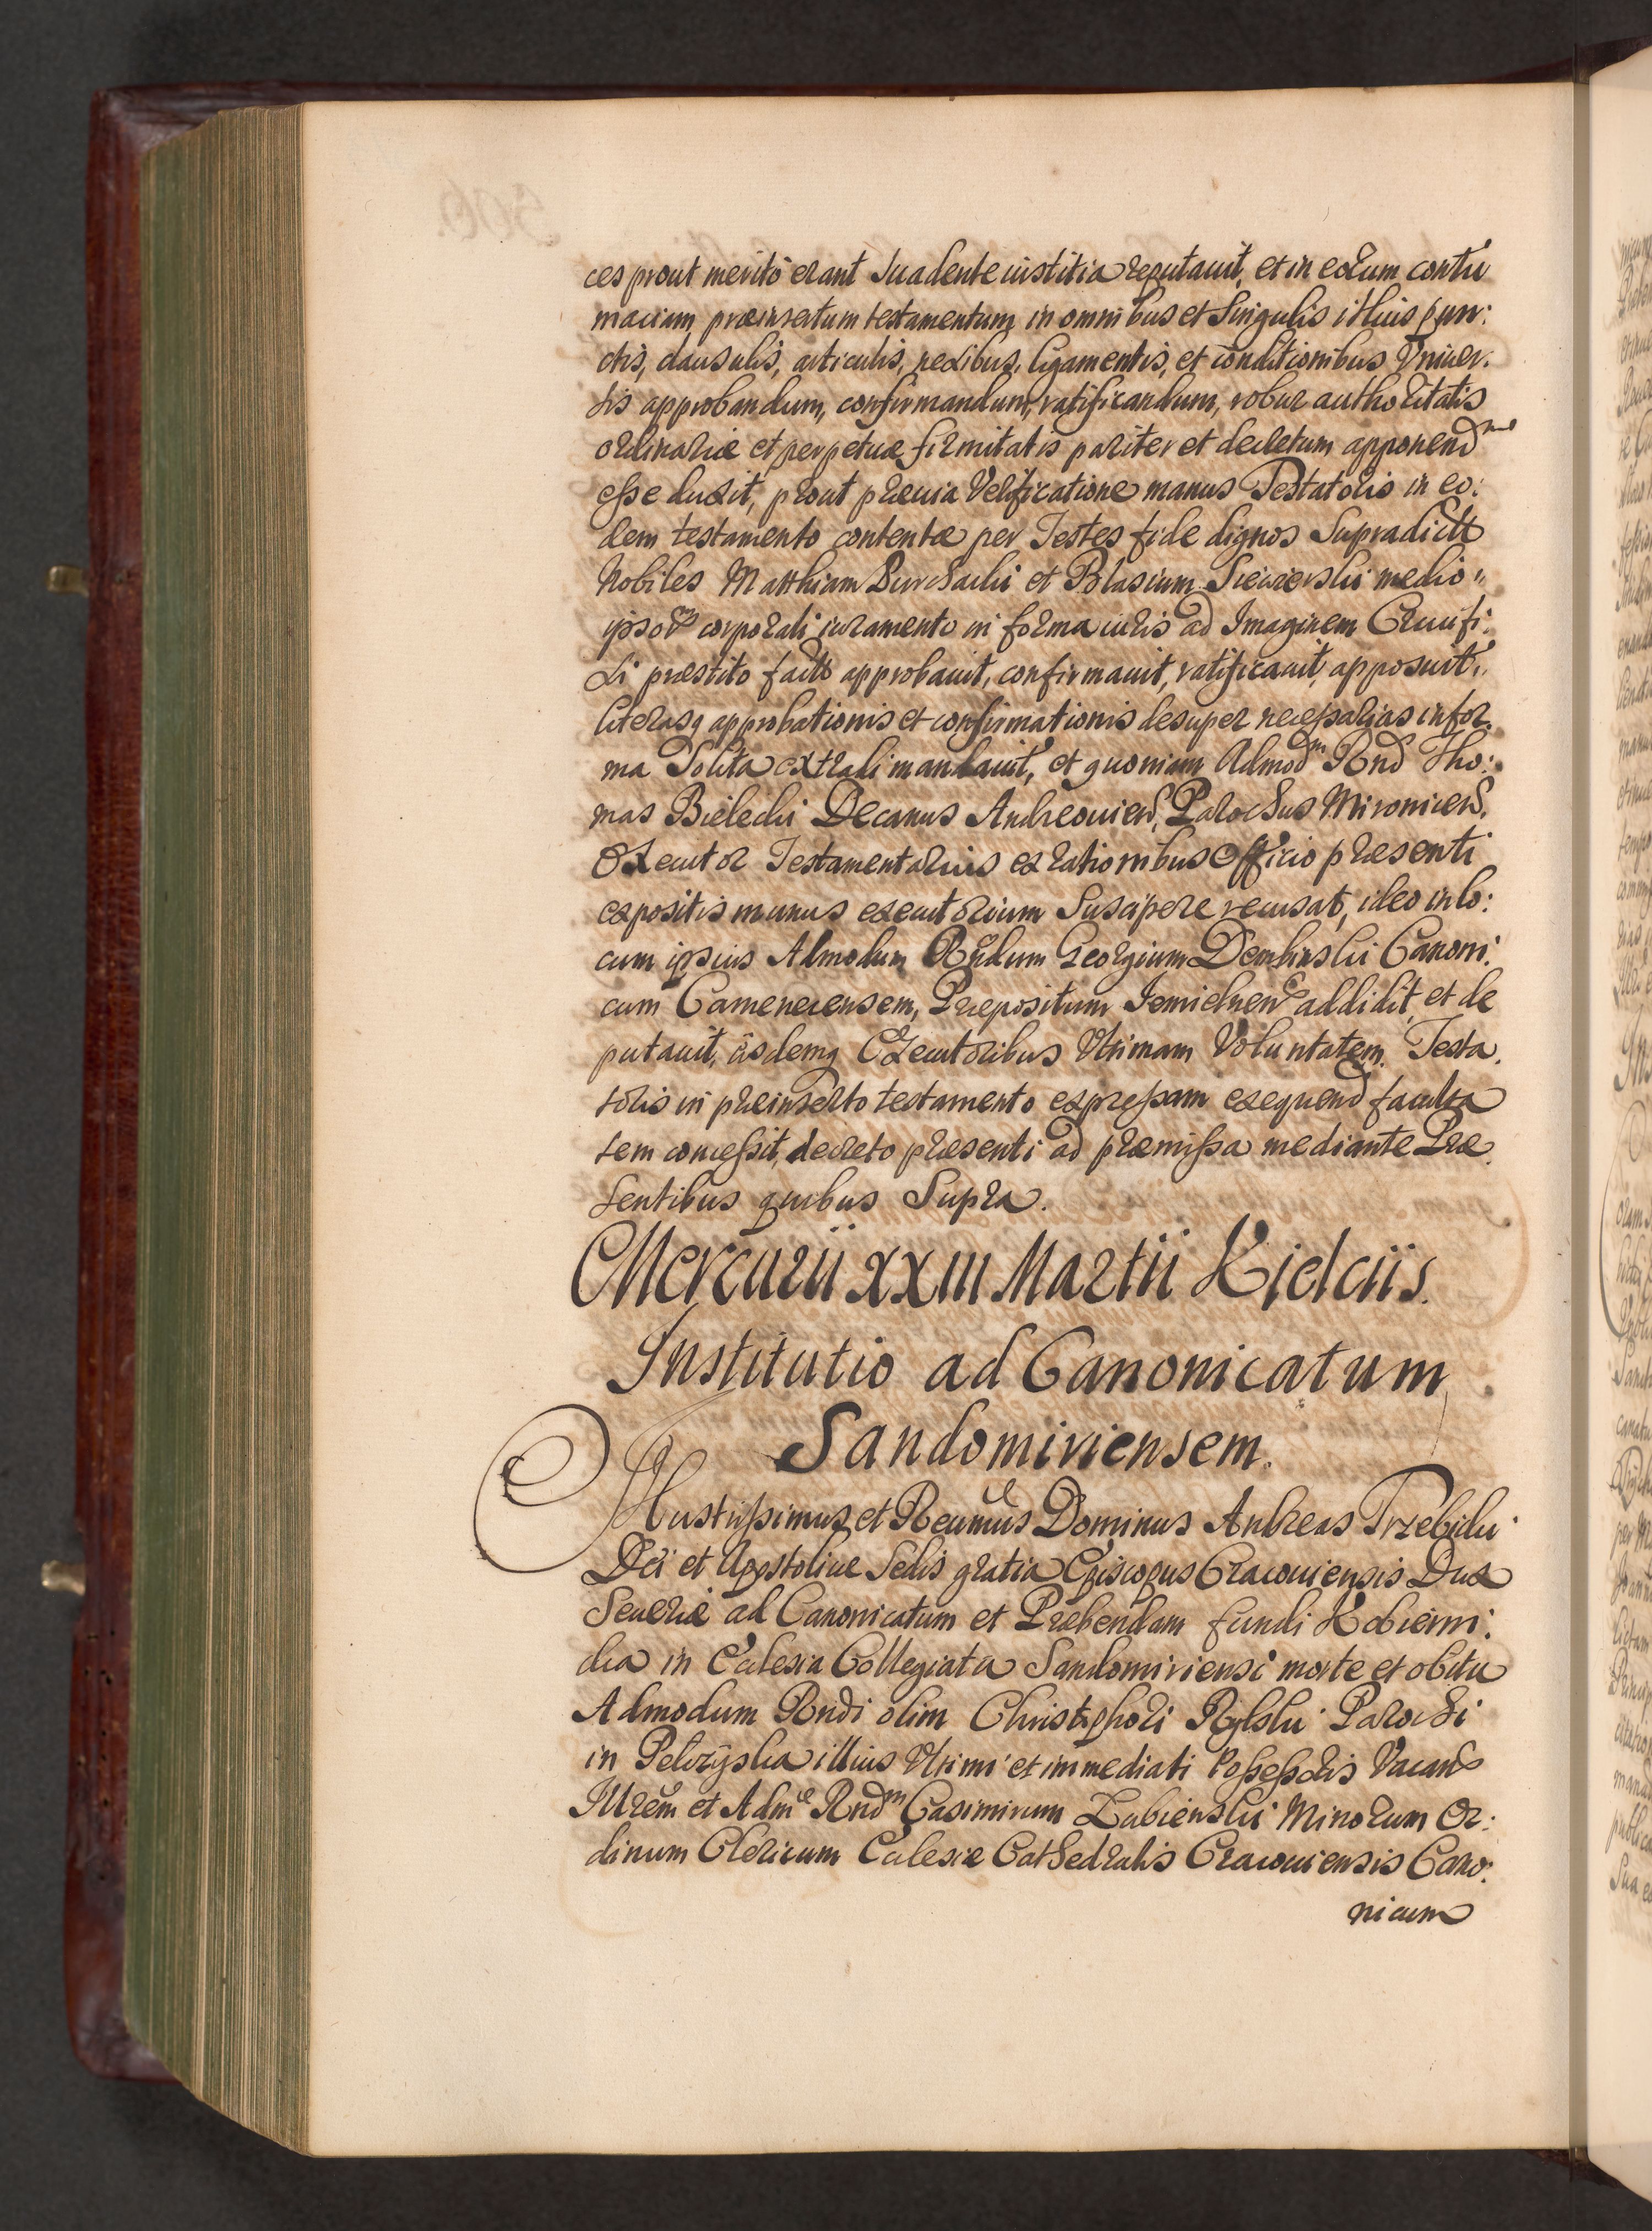 ces prout meritò erant suadente iustitia reputauit, et in eorum contu
maciam, præinsertum testamentum in omnibus et singulis illius pun:
ctis, clausulis, articulis, nexibus, ligamentis, et conditionibus vniuer.
sis approbandum, confirmandum, ratificandum, robur authoritatis
ordinariæ et perpetuæ firmitatis pariter et decretum apponend
esse duxit, prout præuia Verificatione manus Testatoris in eo:
dem testamento contentæ per Testes fide dignos supradictos
Nobiles Matthiam et Blasium medio
ipsorum corporali iuramento in forma iuris ad Imaginem Crucifi:
xi præstito facto approbauit, confirmauit, ratificauit, apposuit,
literasq approbationis et confirmationis desuper necessarias in for
ma solita extradi mandauit, et quoniam Admodm Rnd Tho:
mas Bielecki Decanus Andreouien, Parochus Mironicen.
Executor Testamentarius ex rationibus Officio præsenti
expositis munus executorium suscipere recusat, ideo in lo:
cum ipsius Admodum Rndum Georgium Dembinski Canoni:
cum Camenecensem, Præpositum Jemielnen addidit, et de
putauit, iisdemq Executoribus Vltimam Voluntatem Testa.
toris in præinserto testamento expressam exequend faculta
tem concessit, decreto præsenti ad præmissa mediante Præ
sentibus quibus supra.
Mercurii XXIII Martii Kielciis.
Institutio ad Canonicatum
Sandomiriensem.
Illustrissimus et Reumus Dominus Andreas Trzebicki
Dei et Apostolicæ Sedis gratia Episcopus Cracouiensis Dux
Seueriæ ad Canonicatum et Præbendam fundi Kobierni:
cka in Ecclesia Collegiata Sandomiriensi morte et obitu
Admodum Rndi olim Christophori Rylski Parochi
in illius Vltimi et immediati Possessoris Vacan
Illrem et Adm Rndm Casimirum Łubienski Minorum Or:
dinum Clericum Ecclesiæ Cathedralis Cracouiensis Cano:
nicum